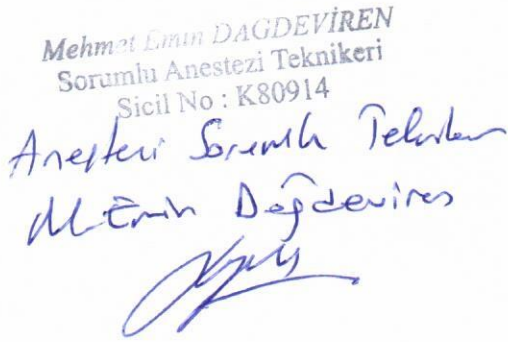 Mehmet Emin DAĞDEVİREN
Sorumlu Anestezi Teknikeri
Sicil No : K80914
Anestezi Sorumlu Tekniker
M. Emin Dağdeviren